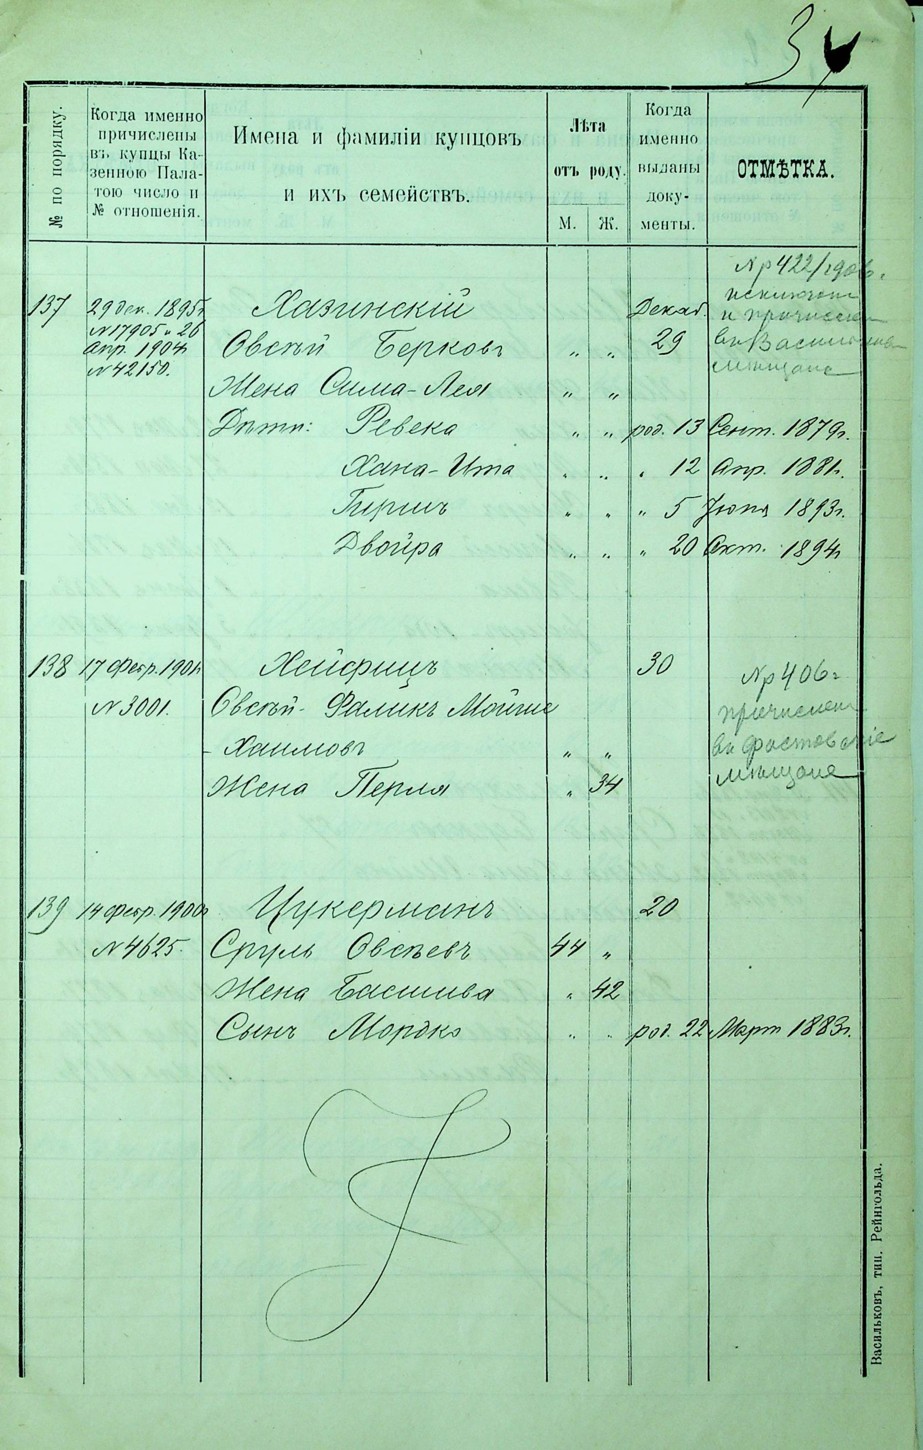 34
№ по порядку.
Когда именно
причислены
въ купцы Ка-
зенною Пала-
тою число и
№ отношенія.
Имена и фамиліи купцовъ
и ихъ семействъ.
Лѣта
отъ роду.
М. Ж.
Когда
именно
выданы
доку-
менты.
ОТМѢТКА.
137
29 дек. 1895г.
№ 17905 и 26
Апр. 1904г.
№ 42150.
Хазинскій Декаб.
Овсѣй Берковъ „ „ 29
Жена Сима-Лея „ „
Дѣти: Ревека „ „ род. 13 Сент. 1879г.
Хана-Ита „ „ „ 12 Апр. 1881г.
Гершъ „ „ „ 5 Іюня 1893г.
Двойра „ „ „ 20 Окт. 1894г.
№ 422/1906.
исключен
и причислен
въ
мѣщане
138 17 Февр. 1901г. Хейфицъ 30
№ 3001. Овсѣй-Фаликъ Мойше
-Хаимовъ „ „
Жена Перля „ 34
№ 406
причислен
въ Фастовскіе
мѣщане
139 14 Февр. 1900г. Цукерманъ 20
№ 4625. Сруль Овсѣевъ 44 „
Жена Басшива „ 42
Сынъ Мордко „ „ род. 22 Март 1883г.
Васильковъ, тип. Рейнгольда.